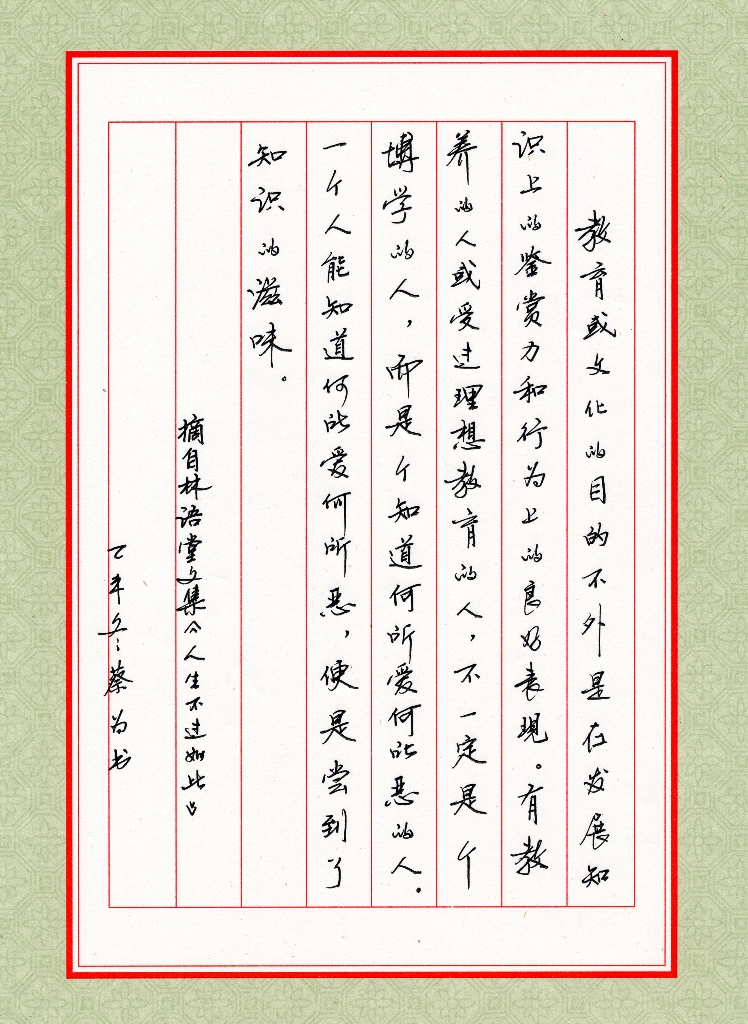 教育或文化的目的不外是在发展知
识上的鉴赏力和行为上的良好表现。有教
养的人或受过理想教育的人，不一定是个
博学的人，而是个知道何所爱何所恶的人。
一个人能知道何所爱何所恶，便是尝到了
知识的滋味。
摘自林语堂文集《人生不过如此》
冬蔡为书